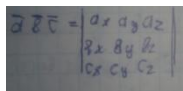 a⃗ b⃗ c⃗ = | ax ay az |
| bx by bz |
| cx cy cz |